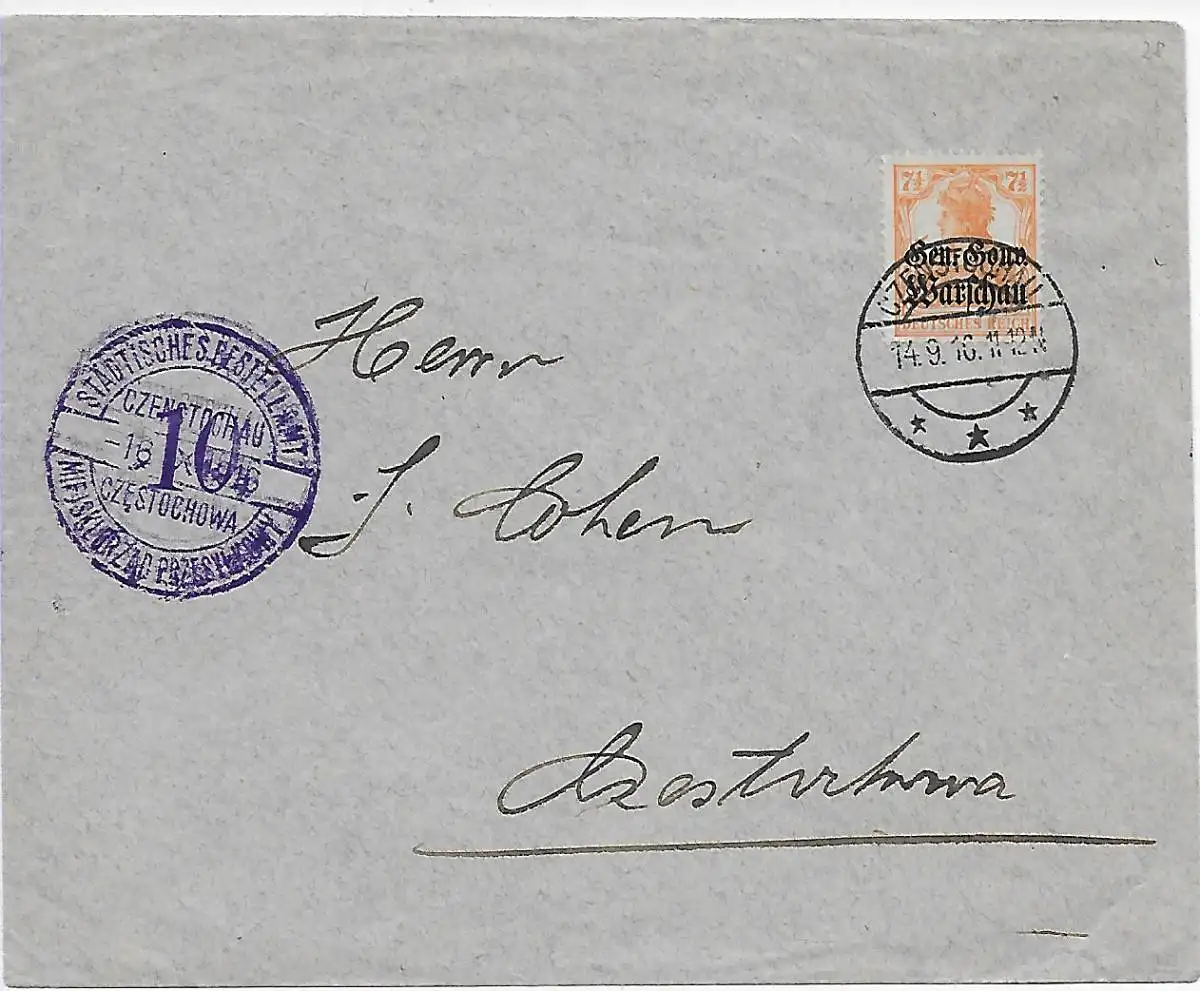 28
7½ 7½
Gen.-Gouv.
Warschau
DEUTSCHES REICH
CZENSTOCHAU
14.9.16. 11-12 N
Herrn
STÄDTISCHES.BESTELLAMT
CZENSTOCHAU
10
CZĘSTOCHOWA
MIEJSKI URZĄD PRZESYŁKOWY
J. Cohen
Czestochowa